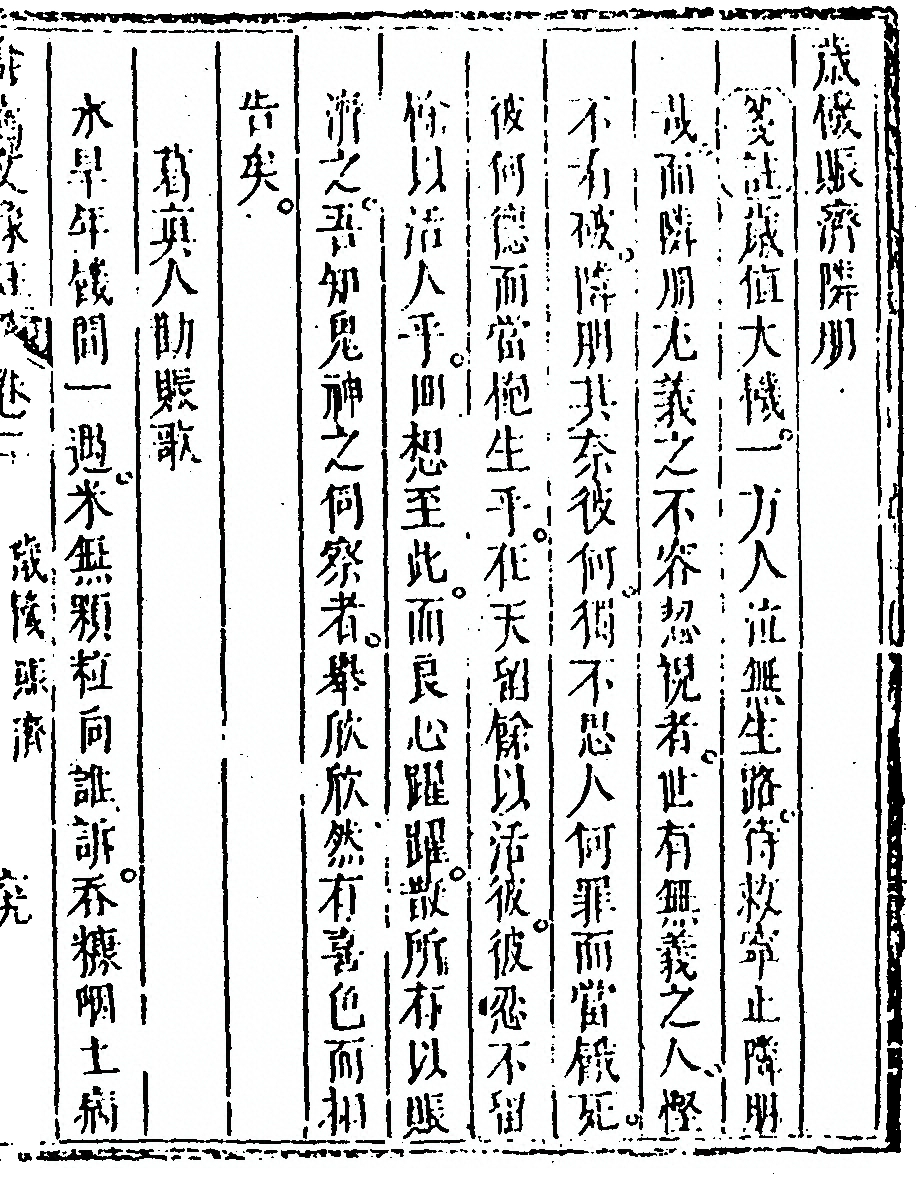 歲饑賑濟隣朋
箋註歲值大機一方人泣無生路待救寧止隣朋
哉而隣朋尤義之不容恝視者世有無義之人慳
不肯破隣朋其奈彼何獨不思人何罪而當餓死
彼何德而當飽生乎在天留餘以活彼彼忍不留
餘以活人乎回想至此而良心躍躍散所存以賑
濟之吾知鬼神之伺察者舉欣欣然有喜色而相
告矣
葛真人勸賑歌
水旱年饑間一遇米無顆粒向誰訴吞糠咽土病
卷一
歲饑賑濟